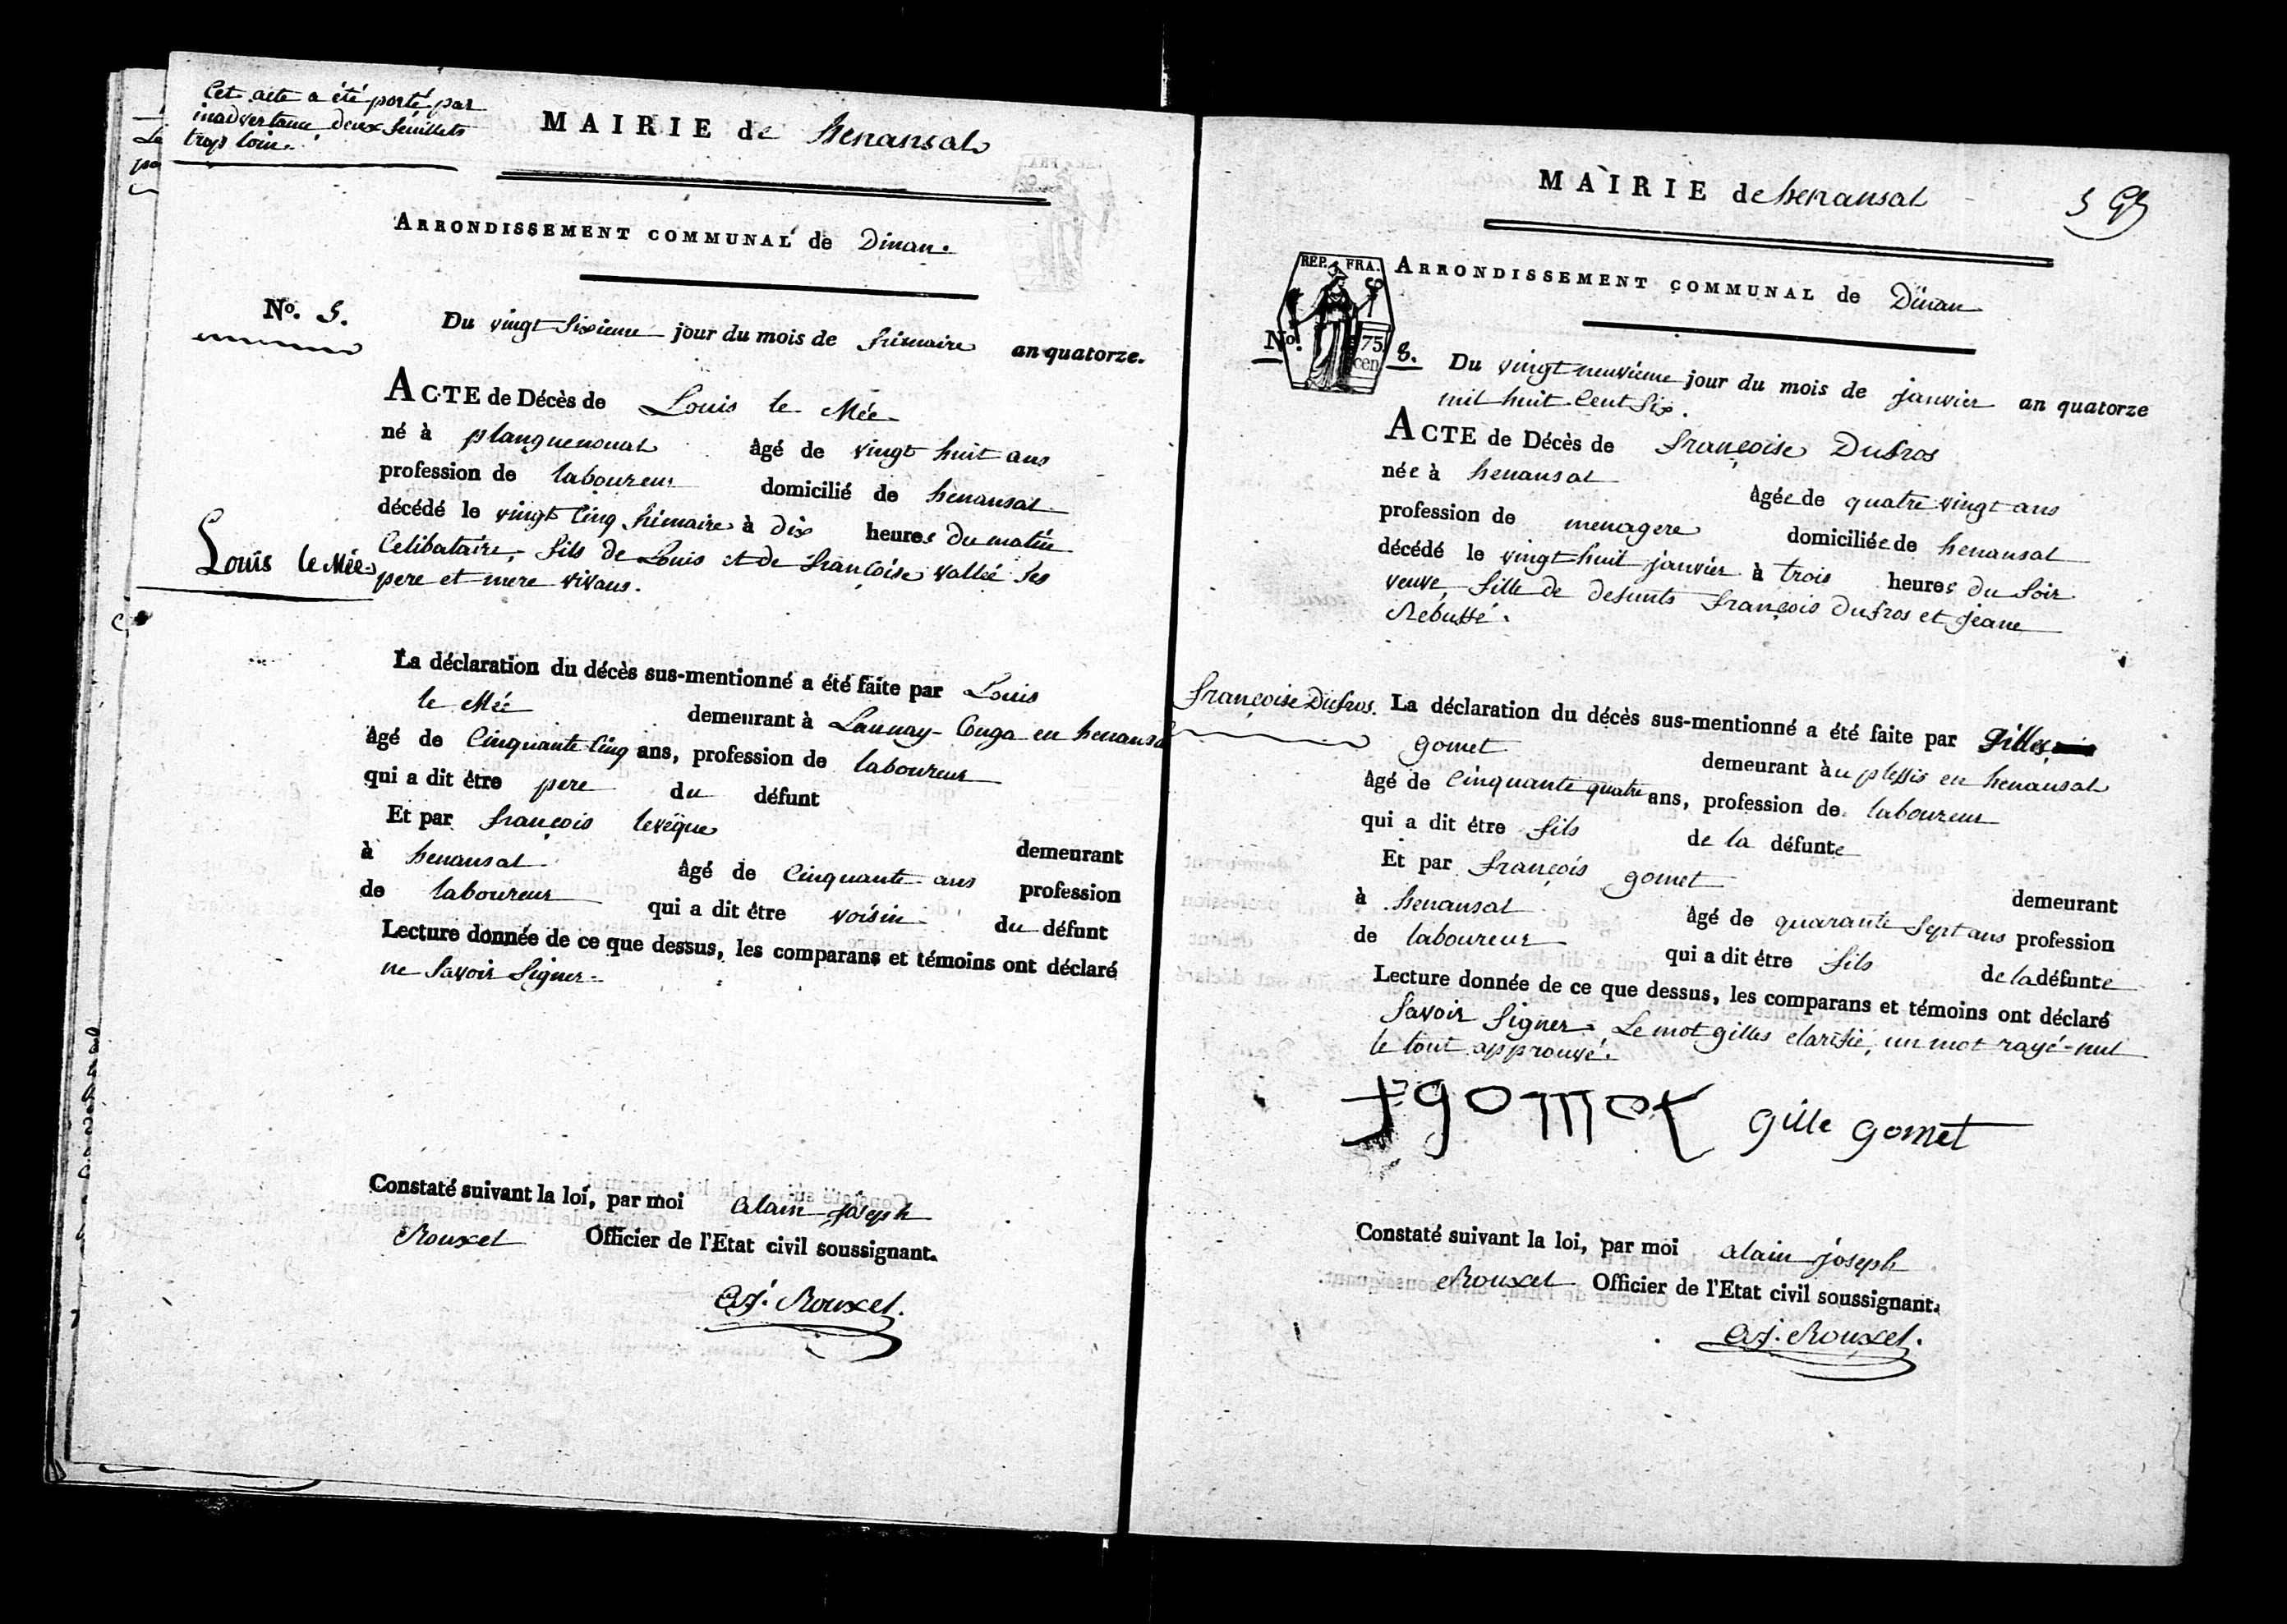 Cet acte a été porté par
inadvertance, deux feuillets
trop loin.
MAIRIE de henansal
ARRONDISSEMENT COMMUNAL de Dinan.
No. 5.
Du vingt sixieme jour du mois de frimaire an quatorze.
ACTE de Décès de Louis le Mée
né à planguenoual âgé de vingt huit ans
profession de laboureur domicilié de henansal
décédé le vingt cinq frimaire à dix heures du matin
Celibataire, fils de Louis et de françoise vallée ses
pere et mere vivans.
Louis le Mée
La déclaration du décès sus-mentionné a été faite par Louis
le Mée demeurant à Launay-Couga en henansal
âgé de Cinquante Cinq ans, profession de laboureur
qui a dit être pere du défunt
Et par françois levêque demeurant
à henansal âgé de Cinquante ans profession
de laboureur qui a dit être voisin du défunt
Lecture donnée de ce que dessus, les comparans et témoins ont déclaré
ne savoir signer.
Constaté suivant la loi, par moi alain joseph
Rouxel Officier de l'Etat civil soussignant.
A.J. Rouxel.
MAIRIE de henansal
5
REP. FRA.
75
cen
ARRONDISSEMENT COMMUNAL de Dinan
No. 8.
Du vingt neuvieme jour du mois de janvier an quatorze
mil huit Cent six.
ACTE de Décès de françoise Dufros
née à henansal âgée de quatre vingt ans
profession de menagere domiciliée de henansal
décédé le vingt huit janvier à trois heures du soir
veuve, fille de defunts françois Dufros et jeane
Rebuffé.
françoise Dufros.
La déclaration du décès sus-mentionné a été faite par Gilles
gomet demeurant àu plessis en henansal
âgé de Cinquante quatre ans, profession de laboureur
qui a dit être fils de la défunte
Et par françois gomet demeurant
à henansal âgé de quarante sept ans profession
de laboureur qui a dit être fils de la défunte
Lecture donnée de ce que dessus, les comparans et témoins ont déclaré
savoir signer. Le mot gilles clarifié, un mot rayé nul
le tout approuvé.
F gomet gille gomet
Constaté suivant la loi, par moi alain joseph
Rouxel Officier de l'Etat civil soussignant.
A.J. Rouxel.